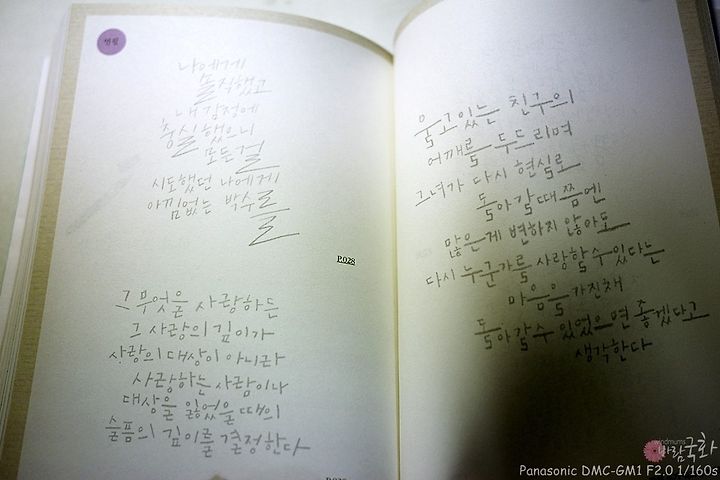 연필
나에게
솔직했고
내 감정에
충실했으니
모든걸
시도했던 나에게
아낌없는 박수를
P.028
그 무엇을 사랑하든
그 사랑의 깊이가
사랑의 대상이 아니라
사랑하는 사람이나
대상을 잃었을 때의
슬픔의 깊이를 결정한다
울고있는 친구의
어깨를 두드리며
그녀가 다시 현실로
돌아갈때쯤엔
많은게 변하지 않아도
다시 누군가를 사랑할수있다는
마음을 가진채
돌아갈수 있었으면 좋겠다고
생각한다
windmums
바람국화
Panasonic DMC-GM1 F2.0 1/160s